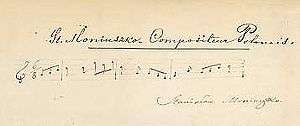 St. Moniuszko Compositeur Polonais.
Stanisław Moniuszko